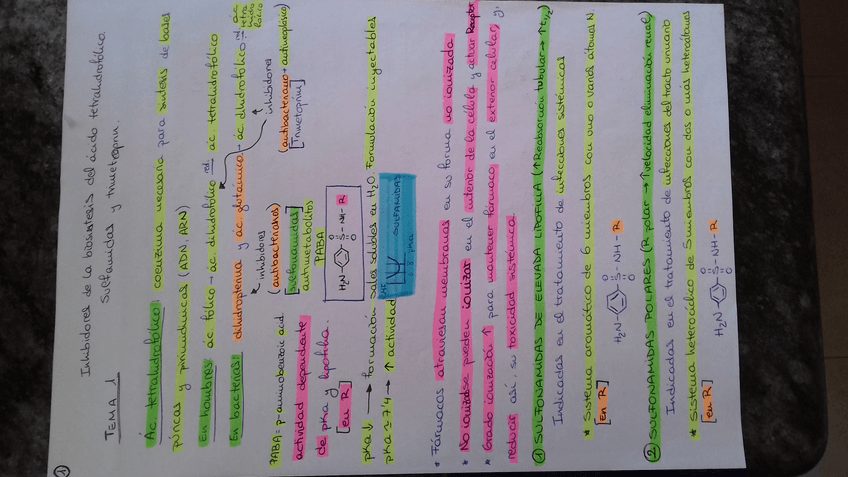 ①
TEMA 1 Inhibidores de la biosíntesis del ácido tetrahidrofólico.
Sulfamidas y trimetroprim.
Ác. tetrahidrofólico: coenzima necesaria para síntesis de bases
púricas y pirimidínicas (ADN, ARN)
En hombres: ác fólico → ác. dihidrofólico red. → ác. tetrahidrofólico
En bacterias: dihidropterina y ác. glutámico → ác dihidrofólico red. → ác tetra hidro fólico
inhibidores
(antibacterianos)
[sulfonamidas]
antimetabolitos
PABA
inhibidores
(antibacteriano + antineoplásico)
[Trimetoprim]
PABA = p-aminobenzoic acid
actividad dependiente
de pKa y lipofilia.
[en R]
H₂N- -S-NH-R
O O
pKa ↓ → formación sales solubles en H₂O. Formulación inyectables
pKa ≈ 7'4 → ↑ actividad
SULFAMIDAS
pKa
* Fármacos atraviesan membranas en su forma no ionizada
* No ionizadas pueden ionizar en el interior de la célula y activar
* Grado ionización ↑ para mantener fármaco en el exterior celular, y,
reducir así, su toxicidad sistémica.
① SULFONAMIDAS DE ELEVADA LIPOFILIA (↑ Reabsorción tubular → ↑ t1/2)
Indicadas en el tratamiento de infecciones sistémicas
* Sistema aromático de 6 miembros con uno o varios átomos N.
[en R]
H₂N- -S-NH-R
O O
② SULFONAMIDAS POLARES (R polar → ↑ velocidad eliminación renal)
Indicadas en el tratamiento de infecciones del tracto urinario
* Sistema heterocíclico de 5 miembros con dos o más heteroátomos
[en R]
H₂N- -S-NH-R
O O